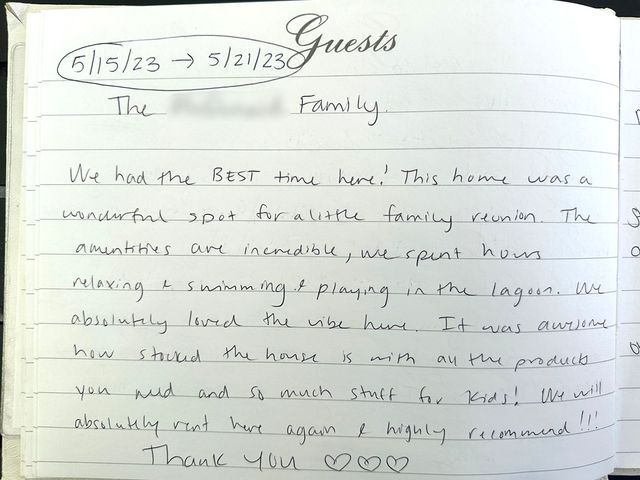 Guests
5/15/23 → 5/21/23
The Family
We had the BEST time here! This home was a
wonderful spot for a little family reunion. The
amentities are incredible, we spent hours
relaxing & swimming & playing in the lagoon. We
absolutely loved the vibe here. It was awesome
how stocked the house is with all the products
you need and so much stuff for kids! We will
absolutely rent here again & highly recommend!!!
Thank you ♡♡♡